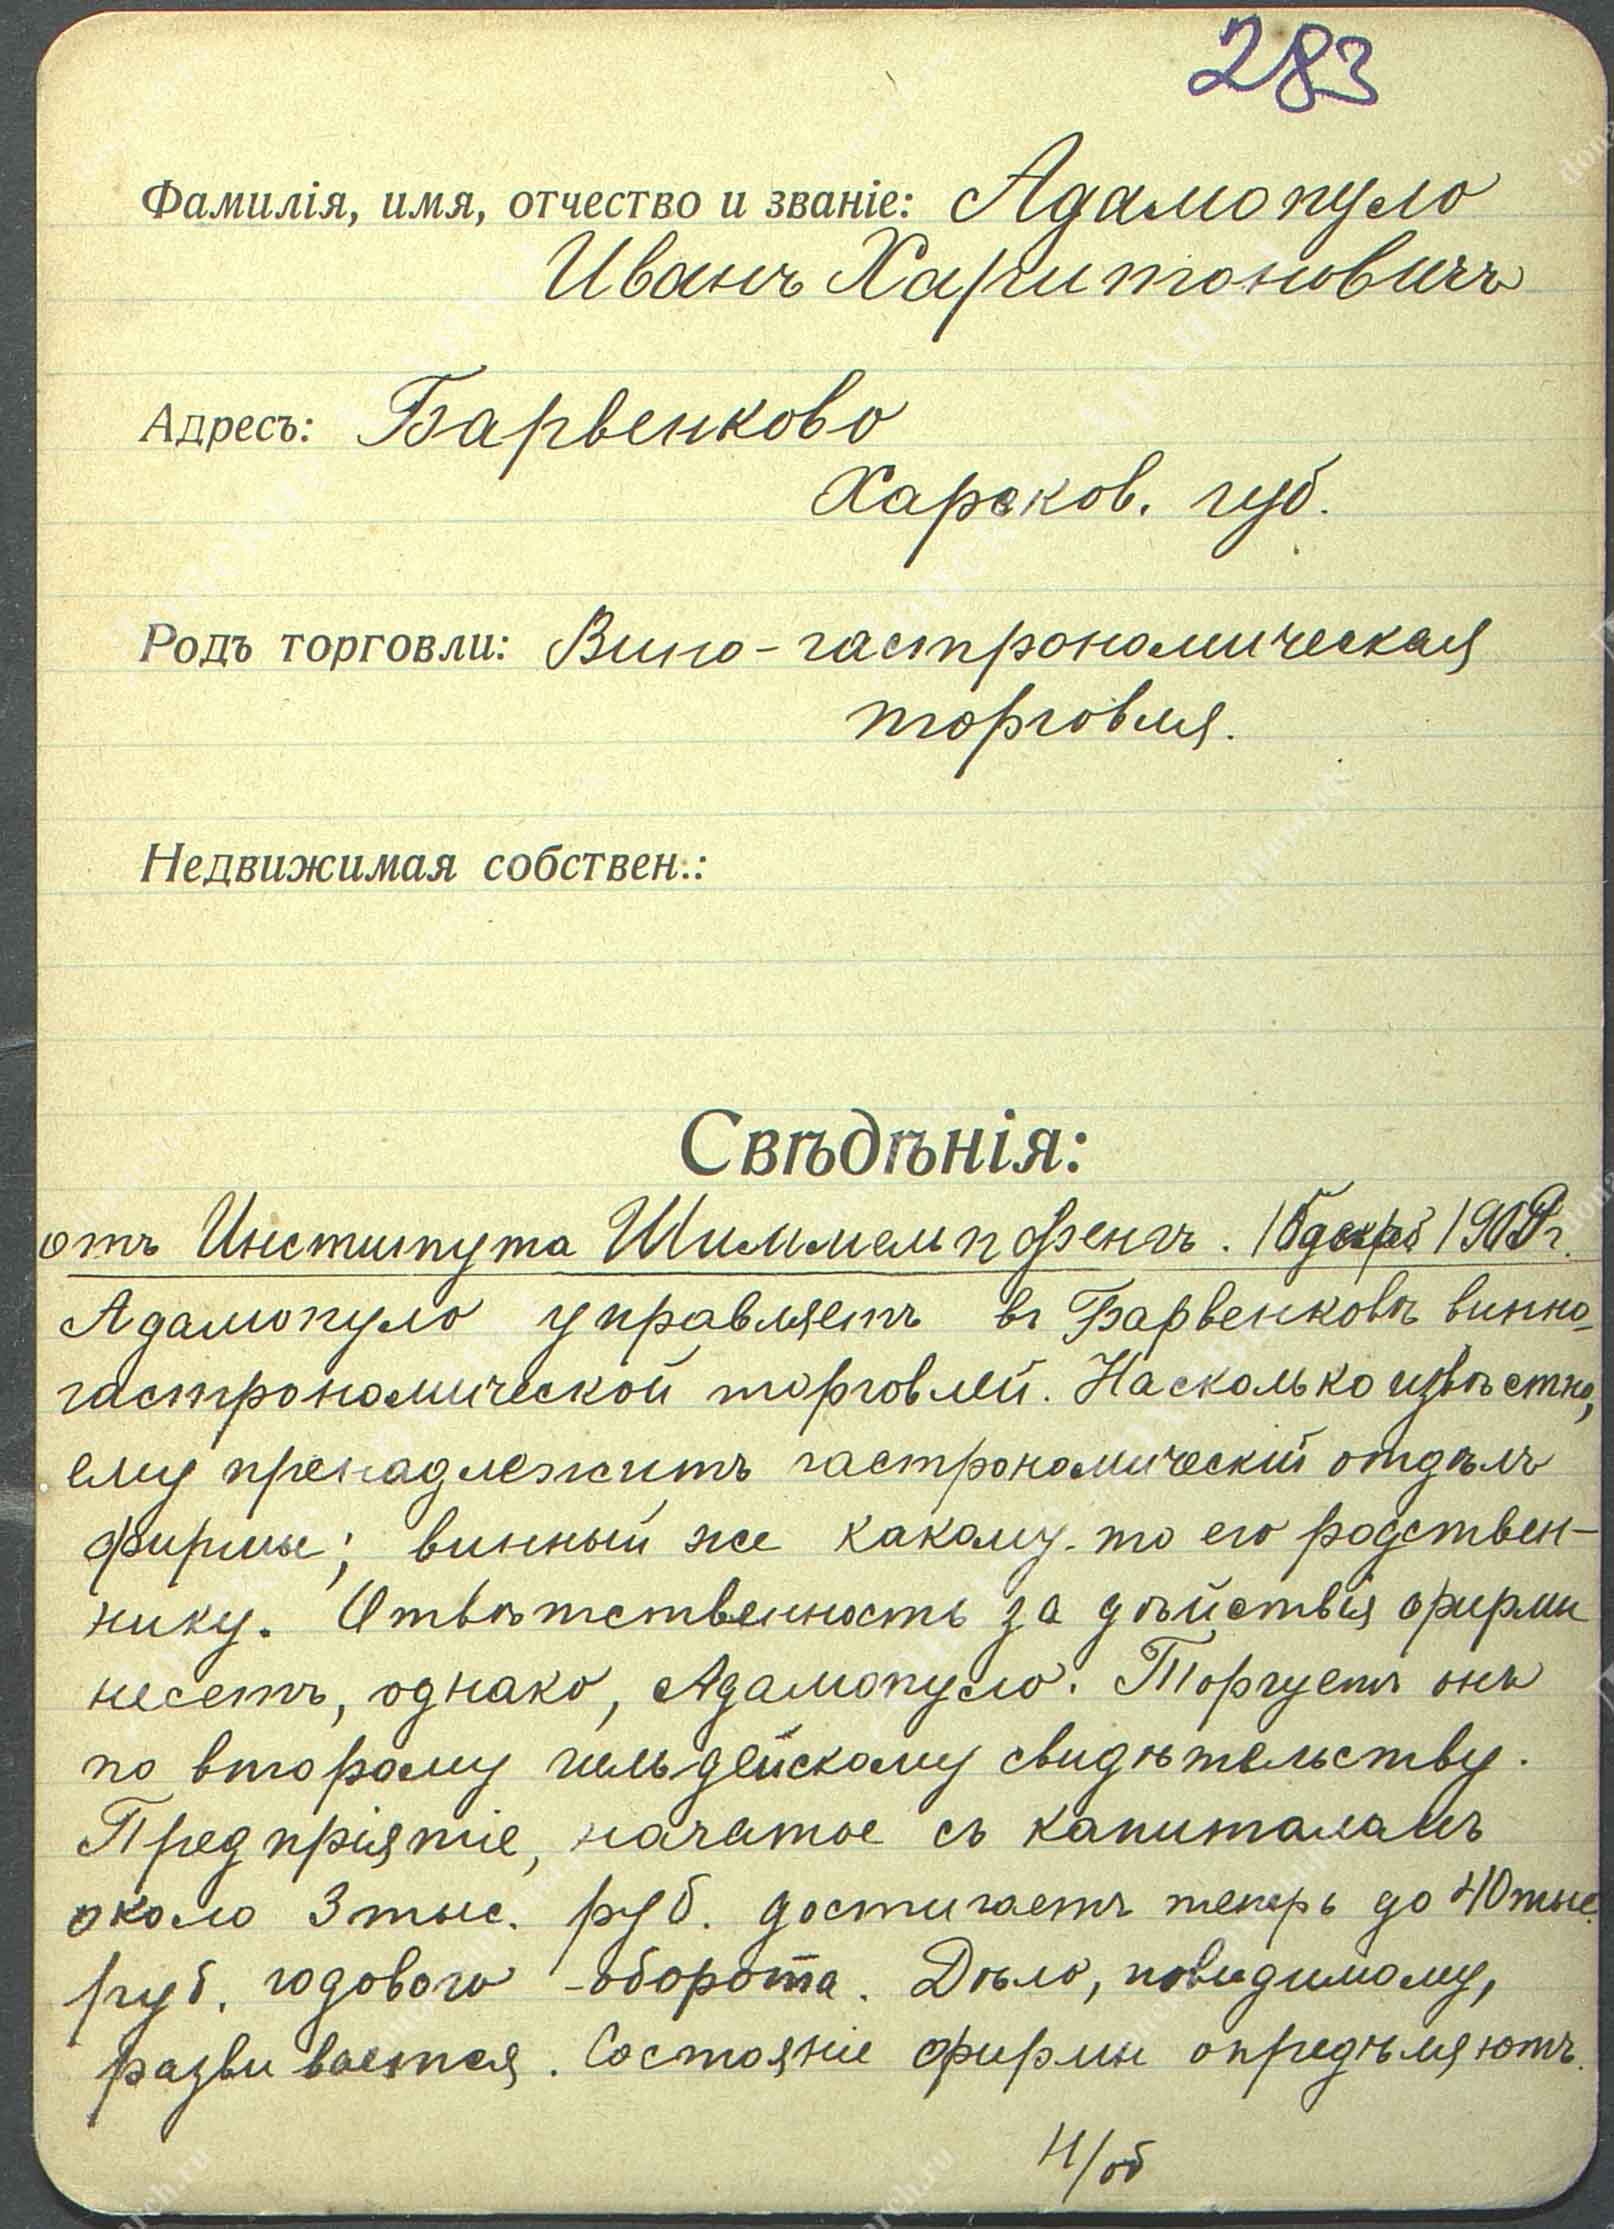 283
Фамилія, имя, отчество и званіе: Адамопуло
Иванъ Харитоновичъ
Адресъ: Барвенково
Харьков. губ.
Родъ торговли: Вино-гастрономическая
торговля.
Недвижимая собствен.:
Свѣдѣнія:
отъ Института Шиммельпфенгъ. 16 декаб 190 г.
Адамопуло управляетъ въ Барвенковѣ винно-
гастрономической торговлей. Насколько извѣстно,
ему пренадлежитъ гастрономическій отдѣлъ
фирмы; винный же какому-то его родствен-
нику. Отвѣтственность за дѣйствія фирмы
несетъ, однако, Адамопуло. Торгуетъ онъ
по второму гильдейскому свидѣтельству.
Предпріятіе, начатое съ капиталамъ
около 3 тыс. руб. достигаетъ теперь до 40 тыс.
руб. годового -оборота. Дѣло, повидимому,
развивается. Состояніе фирмы опредѣляютъ.
Н/об